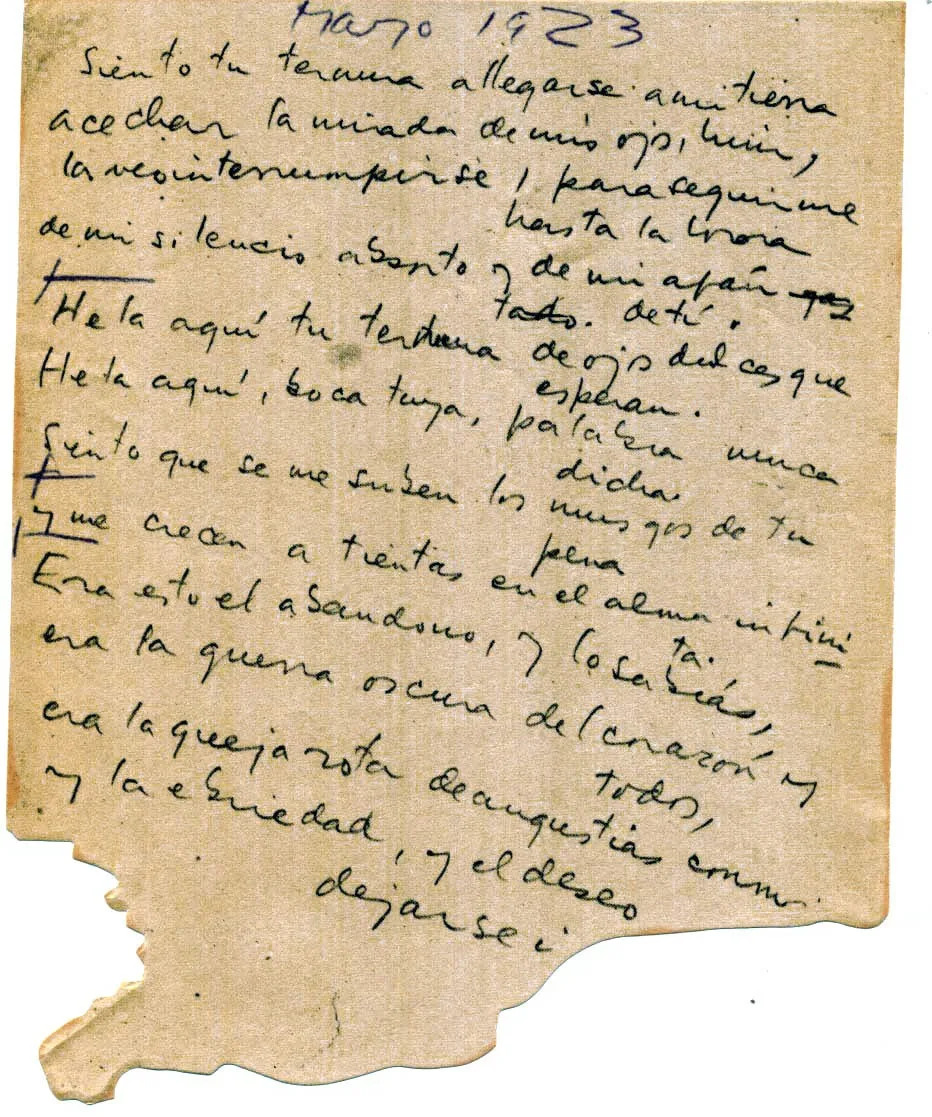 Mayo 1923
Siento tu ternura allegarse a mi tierra
acechar la mirada de mis ojos, huir,
la veo interrumpirse, para seguirme
hasta la hora
de mi silencio absorto y de mi afán
de ti.
Hela aquí tu ternura de ojos dulces que
esperan.
Hela aquí, boca tuya, palabra nunca
dicha.
Siento que se me suben los musgos de tu
pena
y me crecen a tientas en el alma infini
ta.
Era esto el abandono, y lo sabías,
era la guerra oscura del corazón y
todos,
era la queja rota de angustias conmo
y la ebriedad, y el deseo
dejarse i